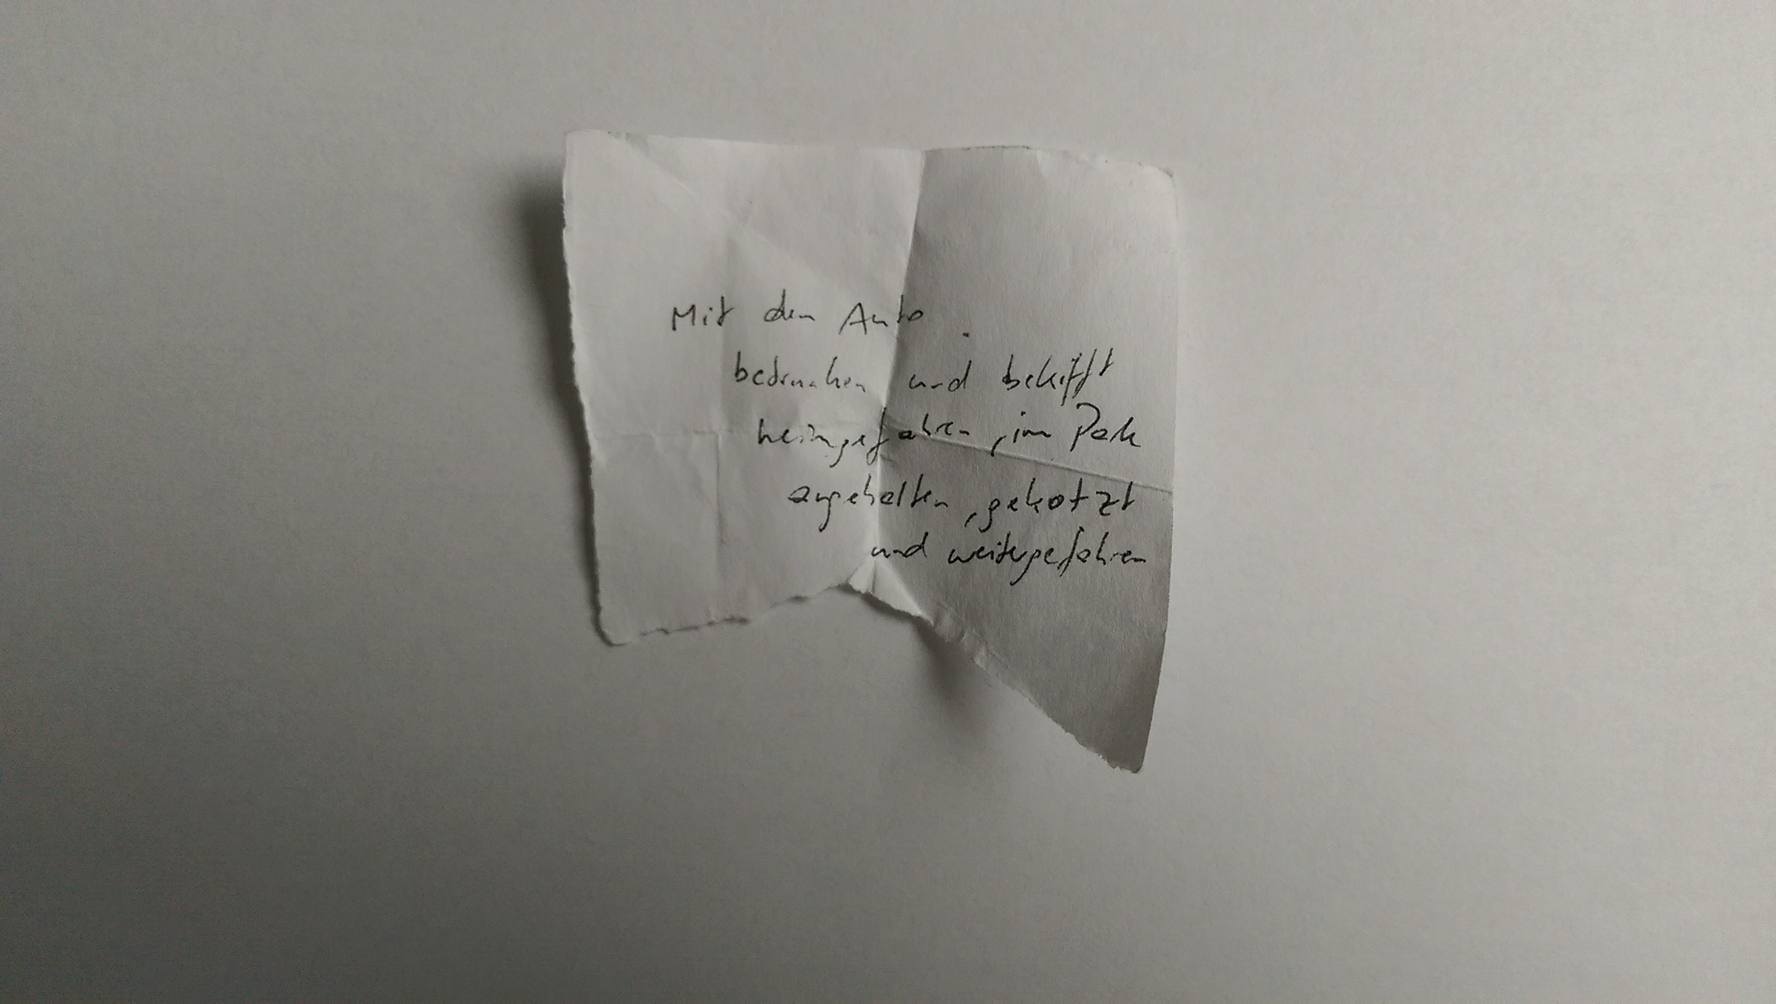 Mit dem Auto
betrunken und bekifft
heimgefahren, im Park
angehalten, gekotzt
und weitergefahren